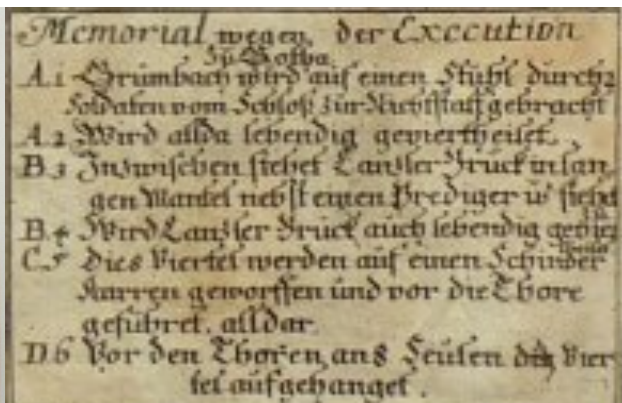 Memorial wegen der Execution
Zu Gotha
A.1 Grumbach wird auf einen Stuhl durch 2
Soldaten vom Schloß zur Richtstatt gebracht
A.2 Wird allda lebendig geviertheilet.
B.3 Inzwischen stehet Canzler Brück in lan
gen Mantel nebst einen Prediger u: siehet
B.4 Wird Canzler Brück auch lebendig gevier
theilet
C.5 Dies Viertel werden auf einen Schinder
Karren geworffen und vor die Thore
geführet. alldar
D.6 Vor den Thoren, an 8 Seulen die Vier
tel aufgehanget.